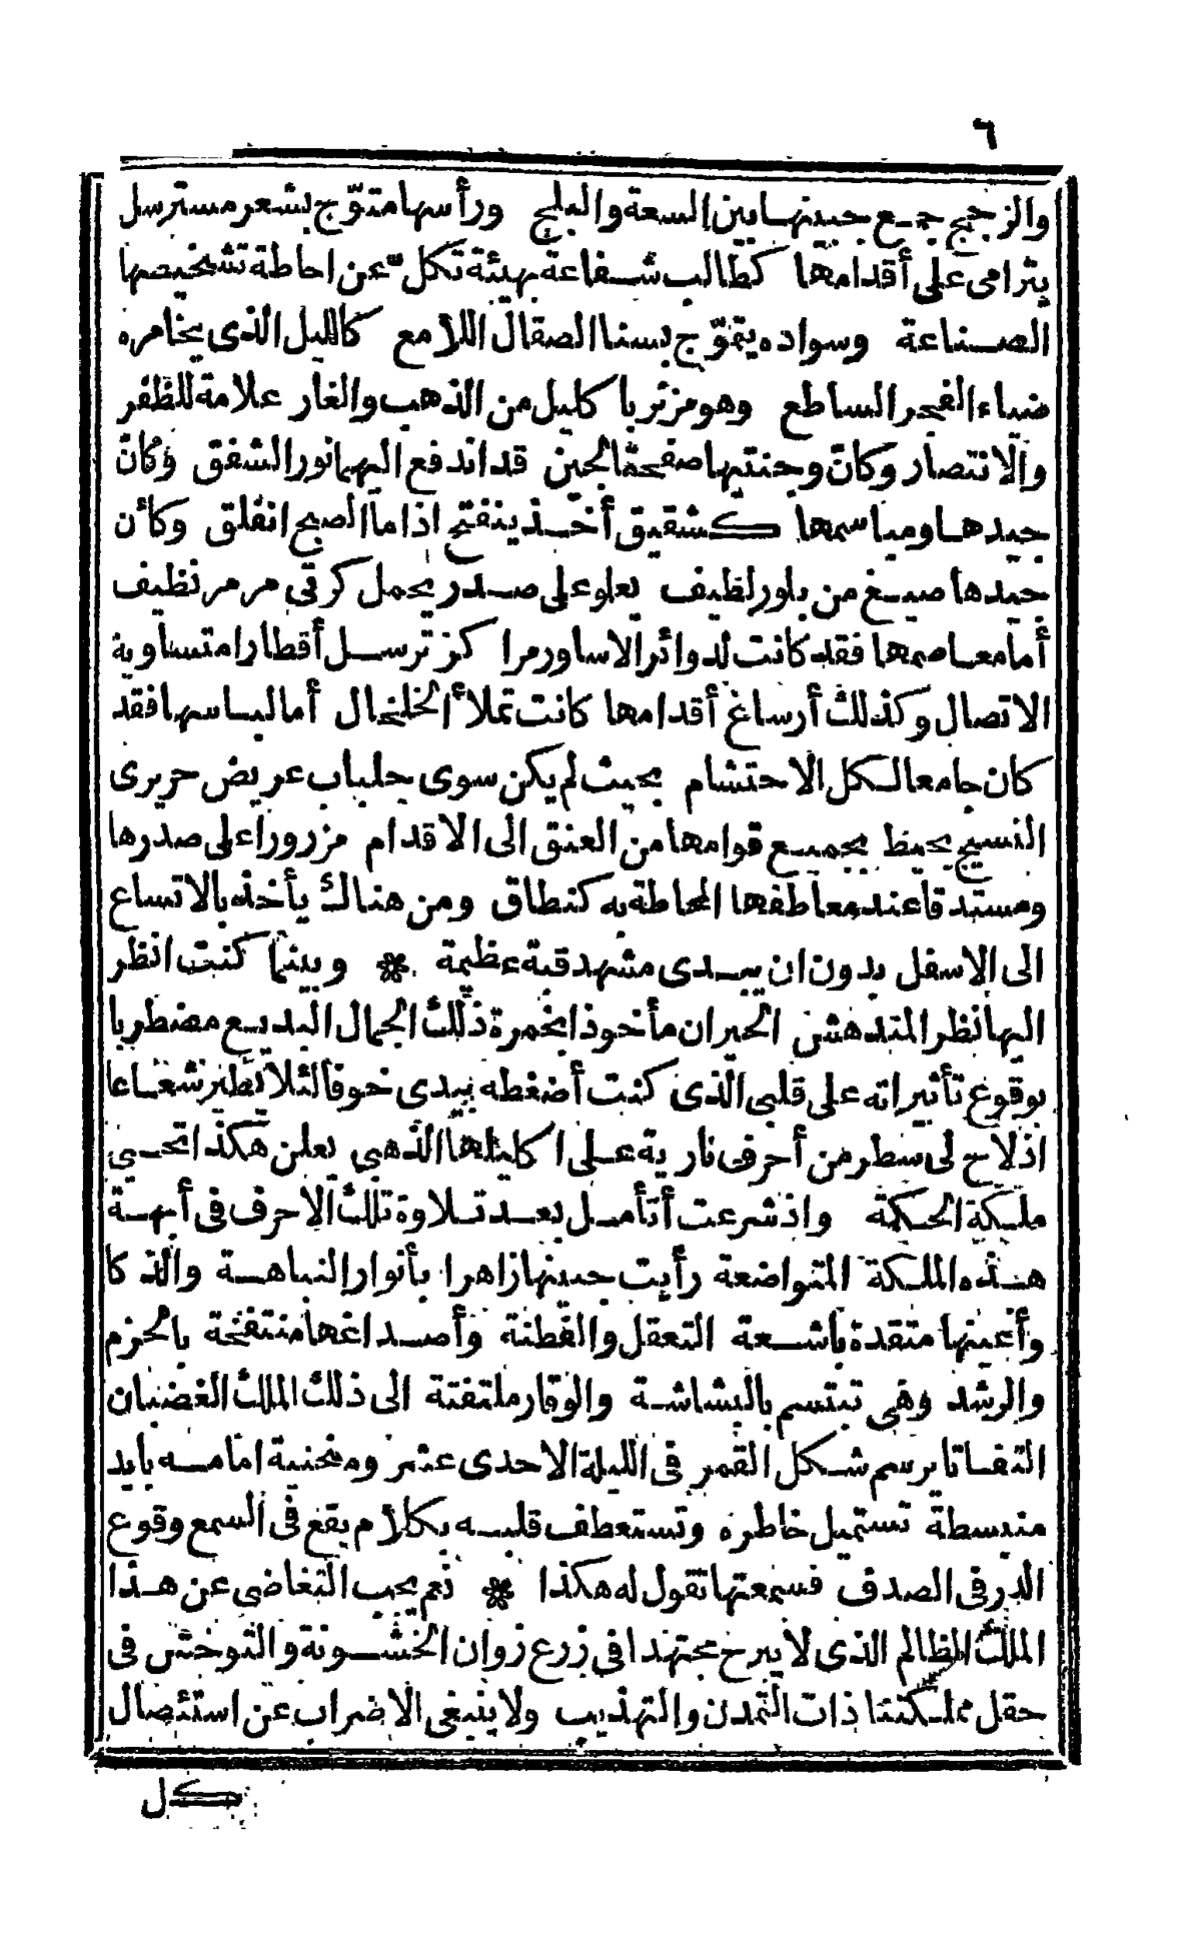 ٦
والزجج جمع جبينها بين السعة والبلج ورأسها متوّج بشعر مسترسل
يترامى على أقدامها كطالب شفاعة بهيئة تكلّ عن احاطة تشخيصها
الصناعة وسواده يتموّج بسنا الصقال اللامع كالليل الذى يخامره
ضياء الفجر الساطع وهو مزثر باكليل من الذهب والغار علامة للظفر
والانتصار وكانّ وجنتيها صفحة لجين قد اندفع اليها نور الشفق وكانّ
جيدها ومباسمها كشقيق أخذ ينفتح اذا ما الصبح انفلق وكأن
جيدها صيغ من بلور لطيف يعلو على صدر يحمل كرتى مرمر نظيف
أما معاصمها فقد كانت لدوائر الاساور مراكز ترسل أقطارا متساوية
الاتصال وكذلك أرساغ أقدامها كانت تملأ الخلخال أما لباسها فقد
كان جامعا لكل الاحتشام بحيث لم يكن سوى جلباب عريض حريرى
النسيج يحيط بجميع قوامها من العنق الى الاقدام مزرورا على صدرها
ومستدقا عند معاطفها المحاطة به كنطاق ومن هناك يأخذ بالاتساع
الى الاسفل بدون ان يبدى مشهد قبة عظيمة * وبينما كنت انظر
اليها نظر المندهش الحيران مأخوذا بخمرة ذلك الجمال البديع مضطربا
بوقوع تأثيراته على قلبى الذى كنت أضغطه بيدى خوفا لئلا تطير شغاعا
اذ لاح لى سطر من أحرف نارية على اكليلها الذهبى يعلن هكذا تحيى
مليكة الحكمة واذ شرعت أتأمل بعد تلاوة تلك الاحرف فى أبهة
هذه الملكة المتواضعة رأيت جبينها زاهرا بأنوار النباهة والذكا
وأعينها متقدة باشعة التعقل والفطنة وأصداغها منتفخة بالحزم
والرشد وهى تبتسم بالبشاشة والوقار ملتفتة الى ذلك الملك الغضبان
التفاتا يرسم شكل القمر فى الليلة الاحدى عشر ومنحنية امامه بايد
منبسطة تستميل خاطره وتستعطف قلبه بكلام يقع فى السمع وقوع
الدر فى الصدف فسمعتها تقول له هكذا * نعم يجب التغاضى عن هذا
الملك الظالم الذى لا يبرح مجتهدا فى زرع زوان الخشونة والتوحش فى
حقل مملكتنا ذات التمدن والتهذيب ولا ينبغى الاضراب عن استئصال
كل